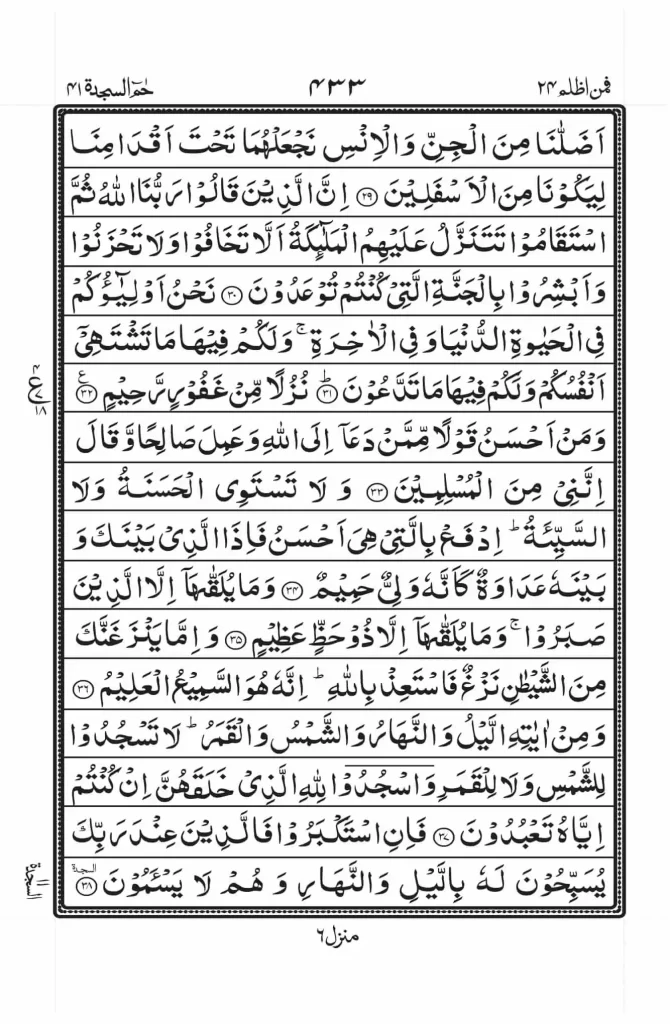 فمن اظلم ۲۴
۴۳۳
حٰمٓ السجدة ۴۱
اَضَلّٰنَا مِنَ الْجِنِّ وَالْاِنْسِ نَجْعَلْهُمَا تَحْتَ اَقْدَامِنَا
لِيَكُوْنَا مِنَ الْاَسْفَلِيْنَ ﴿۲۹﴾ اِنَّ الَّذِيْنَ قَالُوْا رَبُّنَا اللّٰهُ ثُمَّ
اسْتَقَامُوْا تَتَنَزَّلُ عَلَيْهِمُ الْمَلٰٓئِكَةُ اَلَّا تَخَافُوْا وَلَا تَحْزَنُوْا
وَاَبْشِرُوْا بِالْجَنَّةِ الَّتِيْ كُنْتُمْ تُوْعَدُوْنَ ﴿۳۰﴾ نَحْنُ اَوْلِيٰٓؤُكُمْ
فِي الْحَيٰوةِ الدُّنْيَا وَفِي الْاٰخِرَةِ ۚ وَلَكُمْ فِيْهَا مَا تَشْتَهِيْٓ
اَنْفُسُكُمْ وَلَكُمْ فِيْهَا مَا تَدَّعُوْنَ ﴿۳۱﴾ؕ نُزُلًا مِّنْ غَفُوْرٍ رَّحِيْمٍ ﴿۳۲﴾ع
۴ ع ۷ ۱۸
وَمَنْ اَحْسَنُ قَوْلًا مِّمَّنْ دَعَآ اِلَى اللّٰهِ وَعَمِلَ صَالِحًا وَّقَالَ
اِنَّنِيْ مِنَ الْمُسْلِمِيْنَ ﴿۳۳﴾ وَلَا تَسْتَوِي الْحَسَنَةُ وَلَا
السَّيِّئَةُ ؕ اِدْفَعْ بِالَّتِيْ هِيَ اَحْسَنُ فَاِذَا الَّذِيْ بَيْنَكَ وَ
بَيْنَهٗ عَدَاوَةٌ كَاَنَّهٗ وَلِيٌّ حَمِيْمٌ ﴿۳۴﴾ وَمَا يُلَقّٰىهَآ اِلَّا الَّذِيْنَ
صَبَرُوْا ۚ وَمَا يُلَقّٰىهَآ اِلَّا ذُوْ حَظٍّ عَظِيْمٍ ﴿۳۵﴾ وَاِمَّا يَنْزَغَنَّكَ
مِنَ الشَّيْطٰنِ نَزْغٌ فَاسْتَعِذْ بِاللّٰهِ ؕ اِنَّهٗ هُوَ السَّمِيْعُ الْعَلِيْمُ ﴿۳۶﴾
وَمِنْ اٰيٰتِهِ الَّيْلُ وَالنَّهَارُ وَالشَّمْسُ وَالْقَمَرُ ؕ لَا تَسْجُدُوْا
لِلشَّمْسِ وَلَا لِلْقَمَرِ وَاسْجُدُوْا لِلّٰهِ الَّذِيْ خَلَقَهُنَّ اِنْ كُنْتُمْ
اِيَّاهُ تَعْبُدُوْنَ ﴿۳۷﴾ فَاِنِ اسْتَكْبَرُوْا فَالَّذِيْنَ عِنْدَ رَبِّكَ
يُسَبِّحُوْنَ لَهٗ بِالَّيْلِ وَالنَّهَارِ وَهُمْ لَا يَسْـَٔمُوْنَ ﴿۳۸﴾ السجدة
السجدة ۱۱
منزل ۶